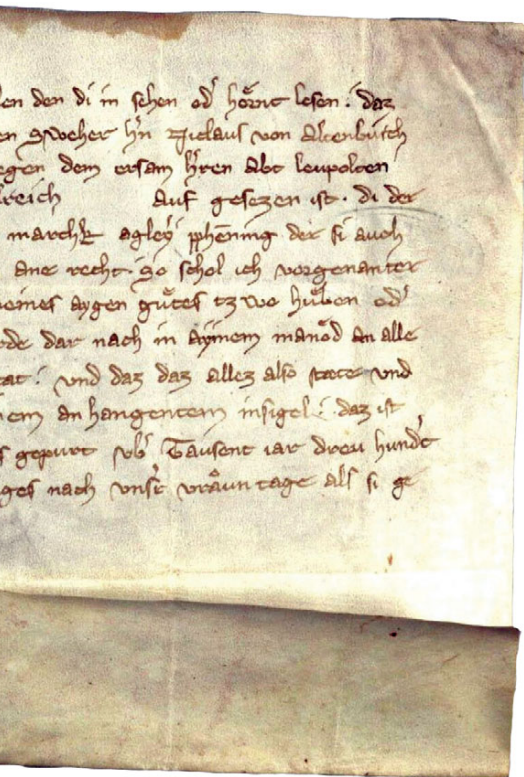 len den di in sehen od̕ hoͤrnt lesen. daz
en sweher h̕n Niclaus von Altenburch
egen dem ersam h̕ren abt leupolten
reich auf gesezen ist. di der
marchk agleÿ phenning der si auch
ane recht. So schol ich vorgenanter
meines aygen guͤtes tzwo huͤben od̕
rde dar nach in aÿinem manod an alle
tat. vnd daz daz allez also stæte vnd
nem an hangentem insigel. daz ist
s gepurt vb̕ Tausent iar dreu hund̕t
ges nach vns̕r vraͮun tage als si ge